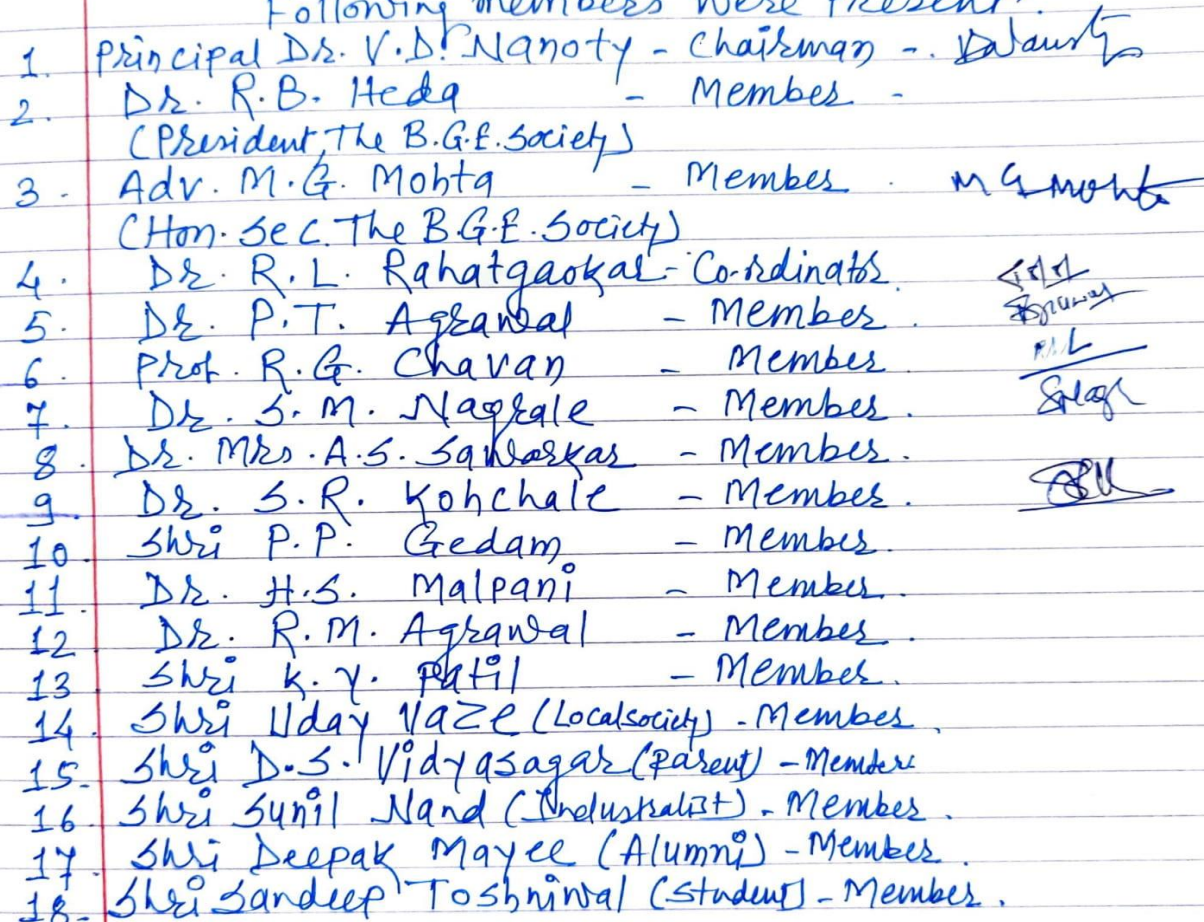 Following members were Present.
1. Principal Dr. V.D. Nanoty - Chairman -.
2. Dr. R.B. Heda - Member -
(President, The B.G.E. Society)
3. Adv. M.G. Mohta - Member. M G Mohta
(Hon. Sec. The B.G.E. Society)
4. Dr. R.L. Rahatgaokar - Co-ordinator.
5. Dr. P.T. Agrawal - Member.
6. Prof. R.G. Chavan - Member.
7. Dr. S.M. Nagrale - Member.
8. Dr. Mrs. A.S. Sawarkar - Member.
9. Dr. S.R. Kohchale - Member.
10. Shri P.P. Gedam - Member.
11. Dr. H.S. Malpani - Member.
12 Dr. R.M. Agrawal - Member.
13 Shri K.Y. Patil - Member.
14. Shri Uday Vaze (Local society) - Member.
15. Shri D.S. Vidyasagar (Parent) - Member
16. Shri Sunil Nand (Industralist) - Member.
17. Shri Deepak Mayee (Alumni) - Member.
18. Shri Sandeep Toshniwal (Student) - Member.